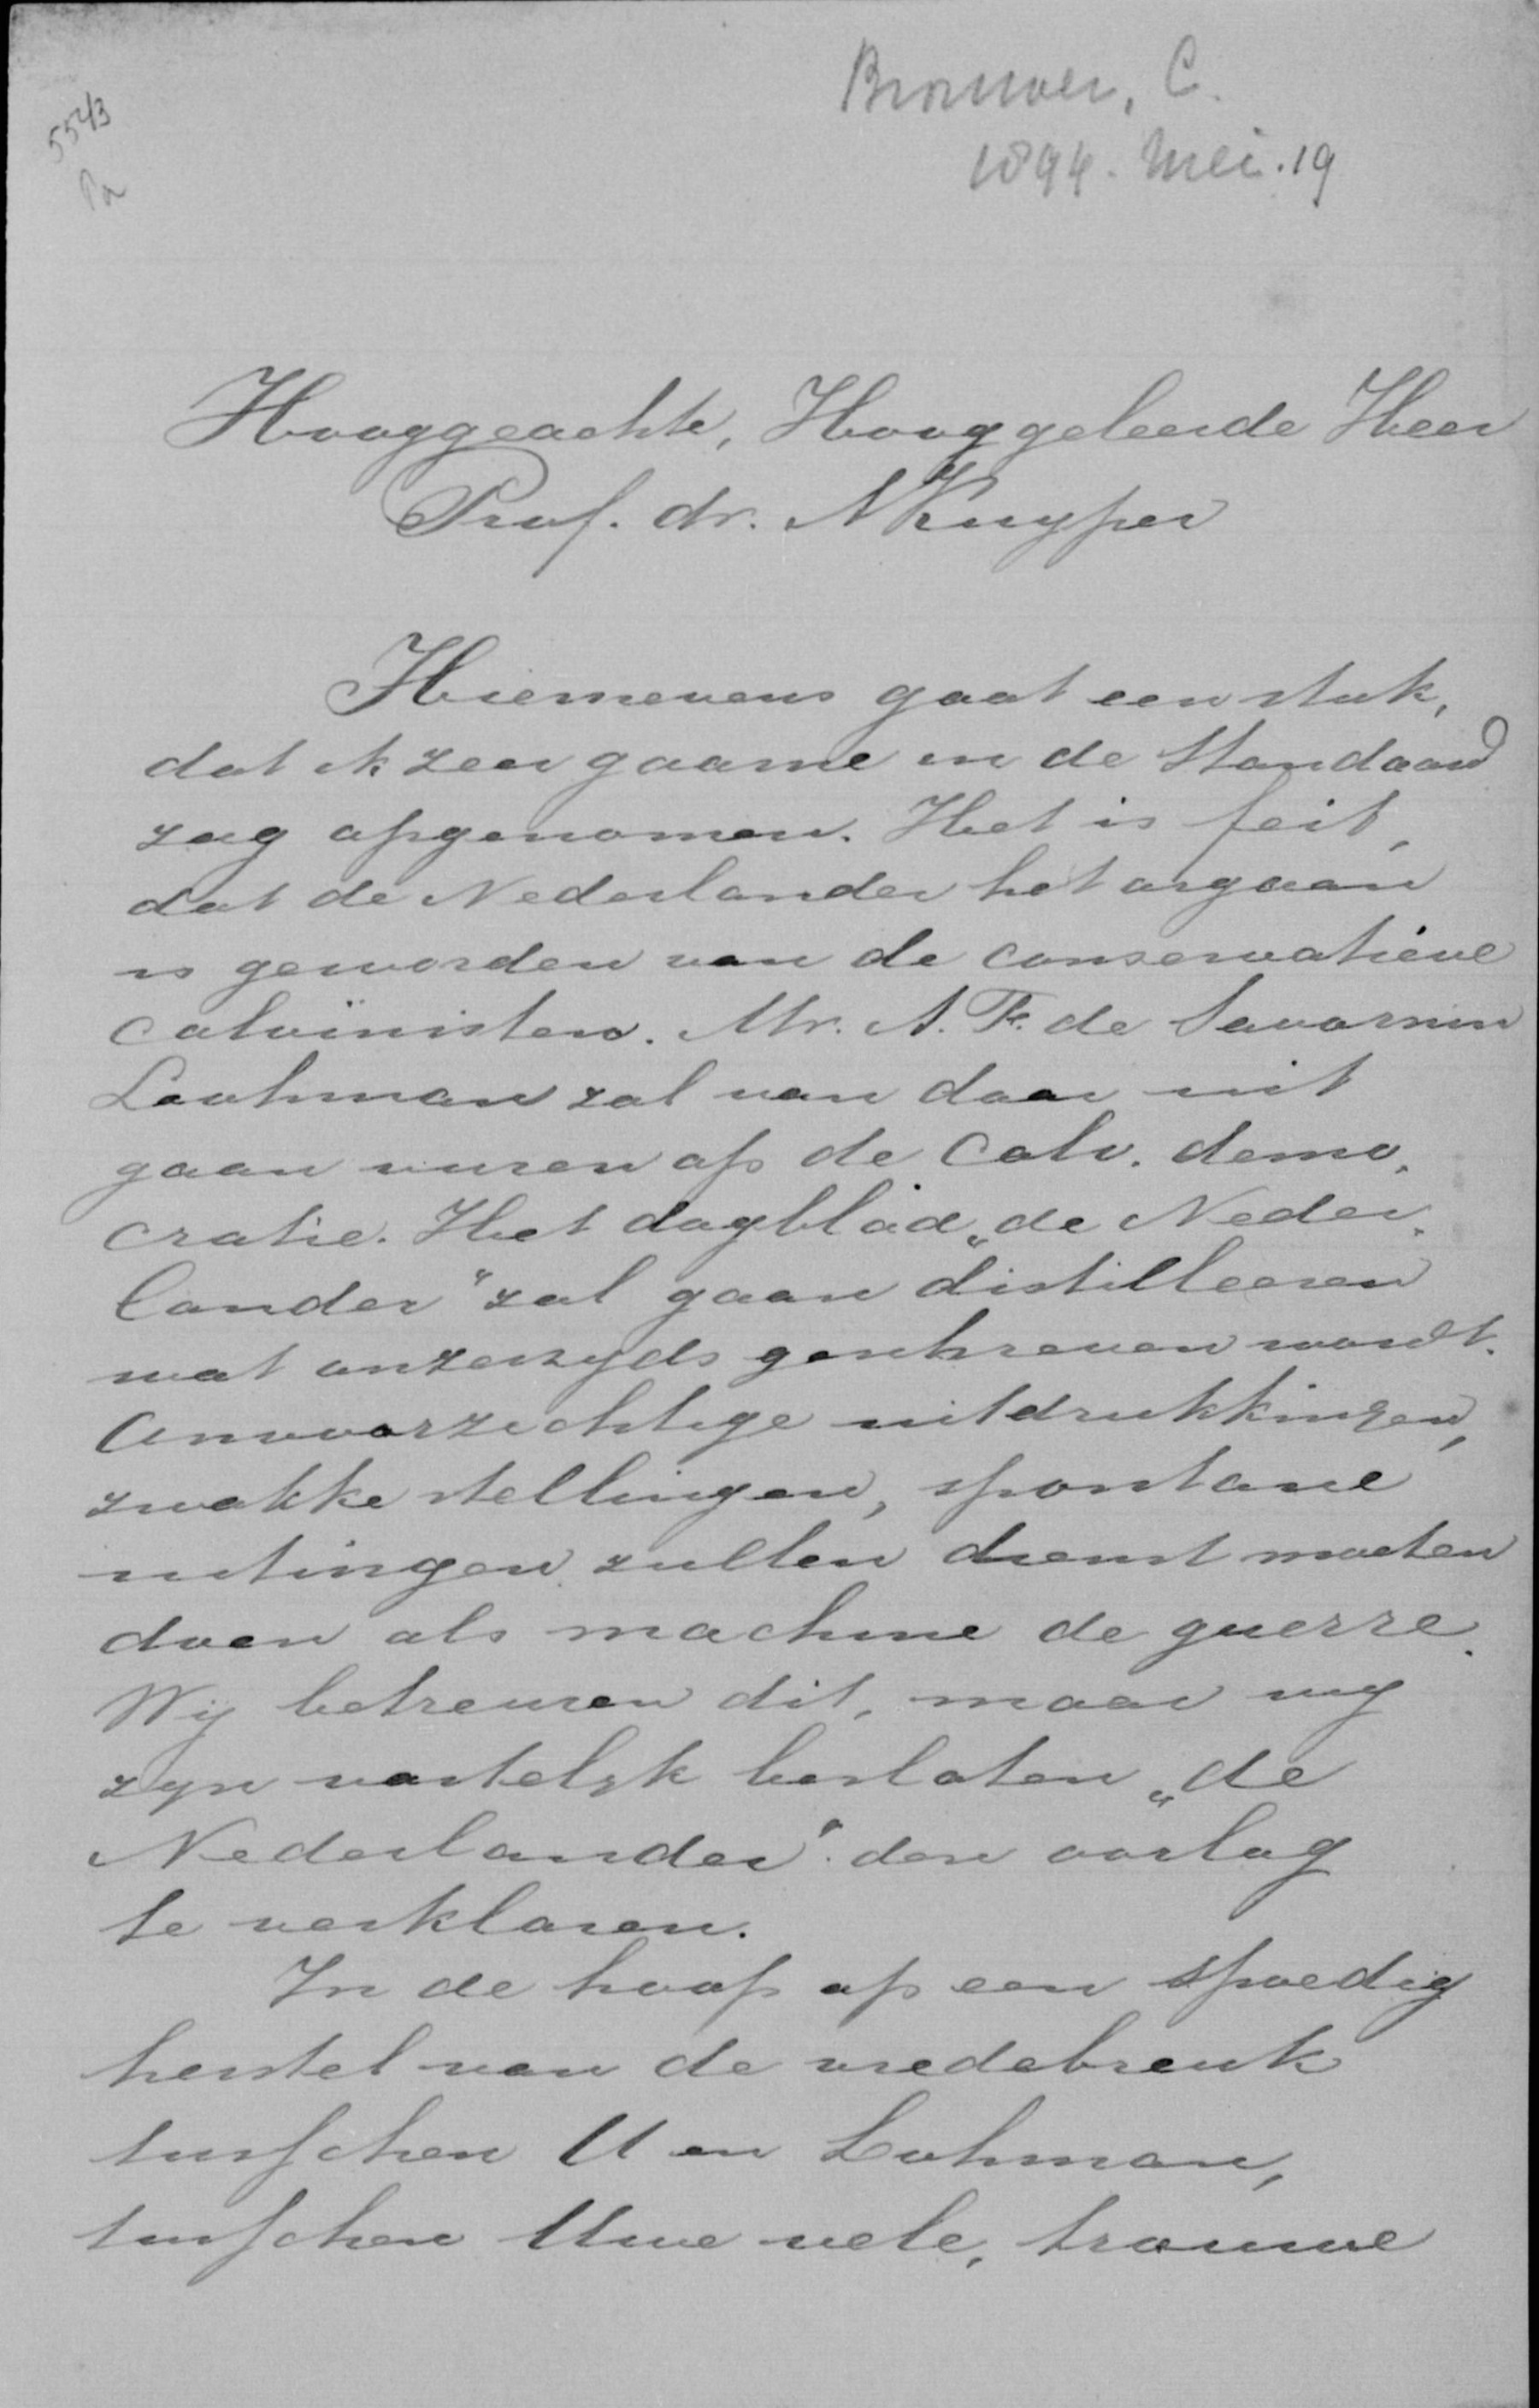 5543
Pa
Brouwer, C.
1894. Mei. 19
Hooggeachte, Hooggeleerde Heer
Prof. dr. A Kuyper
Hiernevens gaat een stuk,
dat ik zeer gaarne in de Standaard
zag opgenomen. Het is feit,
dat de Nederlander het orgaan
is geworden van de conservatieve
calvinisten. Mr. A. F. de Savornin
Loohman zal van daar uit
gaan vuren op de Calv. demo-
cratie. Het dagblad „de Neder-
lander" zal gaan distilleeren
wat onzerzyds geschreven wordt.
Onvoorzichtige uitdrukkingen,
zwakke stellingen, spontane
uitingen zullen dienst moeten
doen als machine de guerre.
Wij betreuren dit, maar wy
zyn vastelyk besloten „de
Nederlander" den oorlog
te verklaren.
In de hoop op een spoedig
herstel van de vredebreuk
tusschen U en Lohman,
tusschen Uwe vele, trouwe